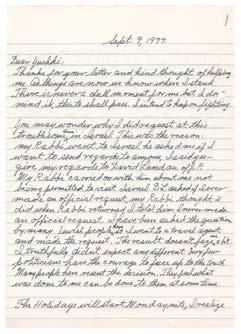 1
Sept. 9, 1977
Dear Yushki:
Thanks for your letter and kind thought of helping
me. As things are now we know where I stand.
There is never a dull moment for me but I do
mind it, this to shall pass. I intend to keep on fighting
You may wonder why I did request at this
troublesome in Israel This was the reason,
my Rabbi went to Israel he asked me if I
want to send regards to anyone, I said yes-
give my regards to David Landau of
My Rabbi carried on with him about me not
being permitted to visit Israel D.L. asked if I ever
made an official request my Rabbi thought I
did when Rabbi returned I told him I never made
an official request. I have been asked the question
by many Jewish people, so I went to a travel agent
and made the request. The result doesn't faze a bit
I truthfully didn't expect any different. Very few
politicians have the courage to face up to the truth
Many people here resent the decision. They feel what
was done to me can be done to them at some time.
The Holidays will start Monday nite, I realize